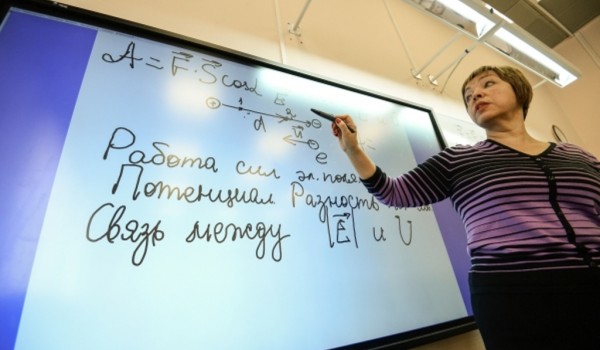 A = F⃗ · S⃗ cosα
E
d
e
Работа сил эл. поля
Потенциал Разность
Связь между |E⃗| и U